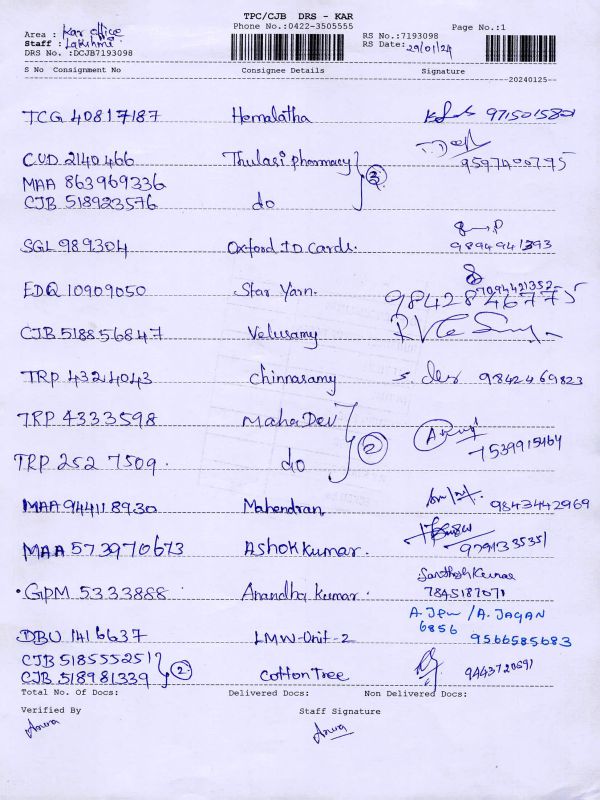 TPC/CJB DRS - KAR
Phone No.:0422-3505555
Page No.:1
Area : Kar office
Staff : Lakshmi
DRS No. :DCJB7193098
RS No.:7193098
RS Date: 29/01/24
S No Consignment No Consignee Details Signature
20240125
TCG 40817187 Hemalatha 9715015801
CUD 2140466 Thulasi pharmacy
MAA 863969336 3
CJB 518923576 do
SGL 989304 Oxford ID Cards. 9894941393
EDQ 10909050 Star Yarn. 9842846775
CJB 518856847 Velusamy
TRP 4324043 Chinnasamy 9842469823
TRP 4333598 MahaDev
2
TRP 252 7509. do 7539915464
MAA 944118930 Mahendran 9843442969
MAA 573970673 Ashok kumar.
GPM 5333888 Anandha kumar. Santhosh Kumar
7845187071
A. JAGAN
DBU 1416637 LMW-Unit-2 6856 9566585683
CJB 518555251
CJB 518981339 2 Cotton Tree 9443720591
Total No. Of Docs: Delivered Docs: Non Delivered Docs:
Verified By Staff Signature